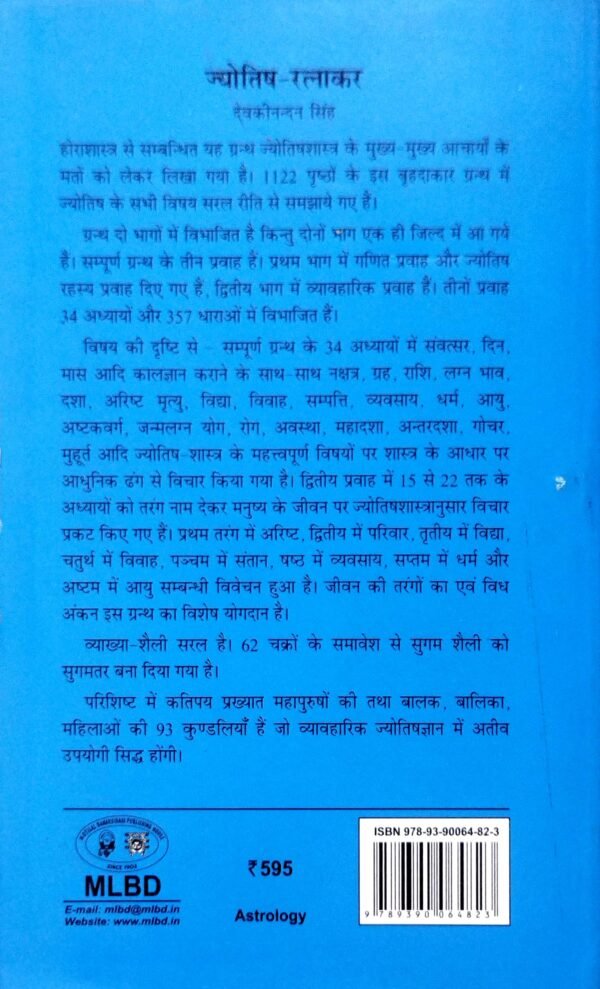 ज्योतिष-रत्नाकर
देवकीनन्दन सिंह
होराशास्त्र से सम्बन्धित यह ग्रन्थ ज्योतिषशास्त्र के मुख्य-मुख्य आचार्यों के
मतों को लेकर लिखा गया है। 1122 पृष्ठों के इस बृहदाकार ग्रन्थ में
ज्योतिष के सभी विषय सरल रीति से समझाये गए हैं।
ग्रन्थ दो भागों में विभाजित है किन्तु दोनों भाग एक ही जिल्द में आ गये
हैं। सम्पूर्ण ग्रन्थ के तीन प्रवाह हैं। प्रथम भाग में गणित प्रवाह और ज्योतिष
रहस्य प्रवाह दिए गए हैं, द्वितीय भाग में व्यावहारिक प्रवाह हैं। तीनों प्रवाह
34 अध्यायों और 357 धाराओं में विभाजित हैं।
विषय की दृष्टि से – सम्पूर्ण ग्रन्थ के 34 अध्यायों में संवत्सर, दिन,
मास आदि कालज्ञान कराने के साथ-साथ नक्षत्र, ग्रह, राशि, लग्न भाव,
दशा, अरिष्ट मृत्यु, विद्या, विवाह, सम्पत्ति, व्यवसाय, धर्म, आयु,
अष्टकवर्ग, जन्मलग्न योग, रोग, अवस्था, महादशा, अन्तरदशा, गोचर,
मुहूर्त आदि ज्योतिष-शास्त्र के महत्त्वपूर्ण विषयों पर शास्त्र के आधार पर
आधुनिक ढंग से विचार किया गया है। द्वितीय प्रवाह में 15 से 22 तक के
अध्यायों को तरंग नाम देकर मनुष्य के जीवन पर ज्योतिषशास्त्रानुसार विचार
प्रकट किए गए हैं। प्रथम तरंग में अरिष्ट, द्वितीय में परिवार, तृतीय में विद्या,
चतुर्थ में विवाह, पञ्चम में संतान, षष्ठ में व्यवसाय, सप्तम में धर्म और
अष्टम में आयु सम्बन्धी विवेचन हुआ है। जीवन की तरंगों का एवं विध
अंकन इस ग्रन्थ का विशेष योगदान है।
व्याख्या-शैली सरल है। 62 चक्रों के समावेश से सुगम शैली को
सुगमतर बना दिया गया है।
परिशिष्ट में कतिपय प्रख्यात महापुरुषों की तथा बालक, बालिका,
महिलाओं की 93 कुण्डलियाँ हैं जो व्यावहारिक ज्योतिषज्ञान में अतीव
उपयोगी सिद्ध होंगी।
MOTILAL BANARSIDASS PUBLISHING HOUSE
SINCE 1903
MLBD
E-mail: mlbd@mlbd.in
Website: www.mlbd.in
₹ 595
Astrology
ISBN 978-93-90064-82-3
9 789390 064823